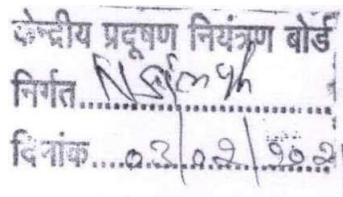 केन्द्रीय प्रदूषण नियंत्रण बोर्ड
निर्गत
दिनांक 03/02/202